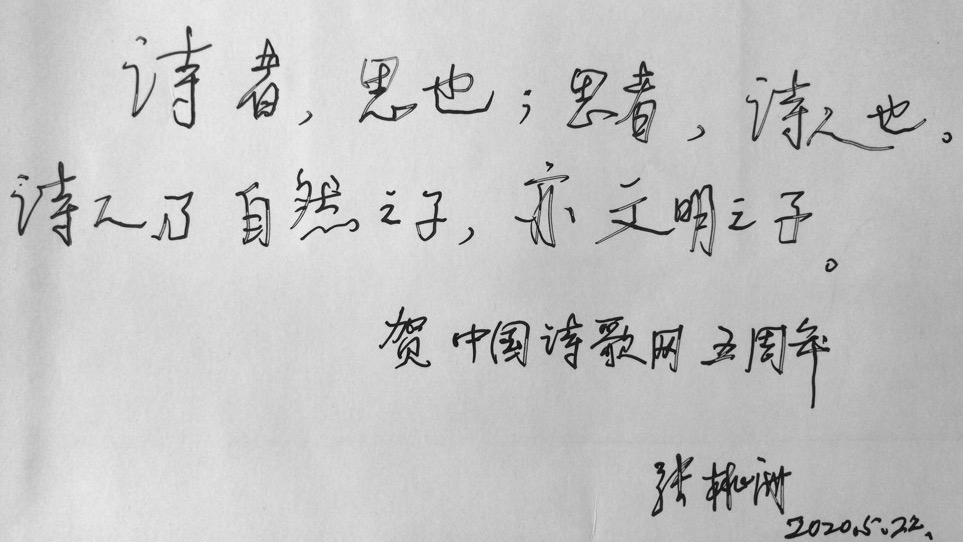 诗者，思也；思者，诗人也。
诗人乃自然之子，亦文明之子。
贺中国诗歌网五周年
张桃洲
2020.5.22.